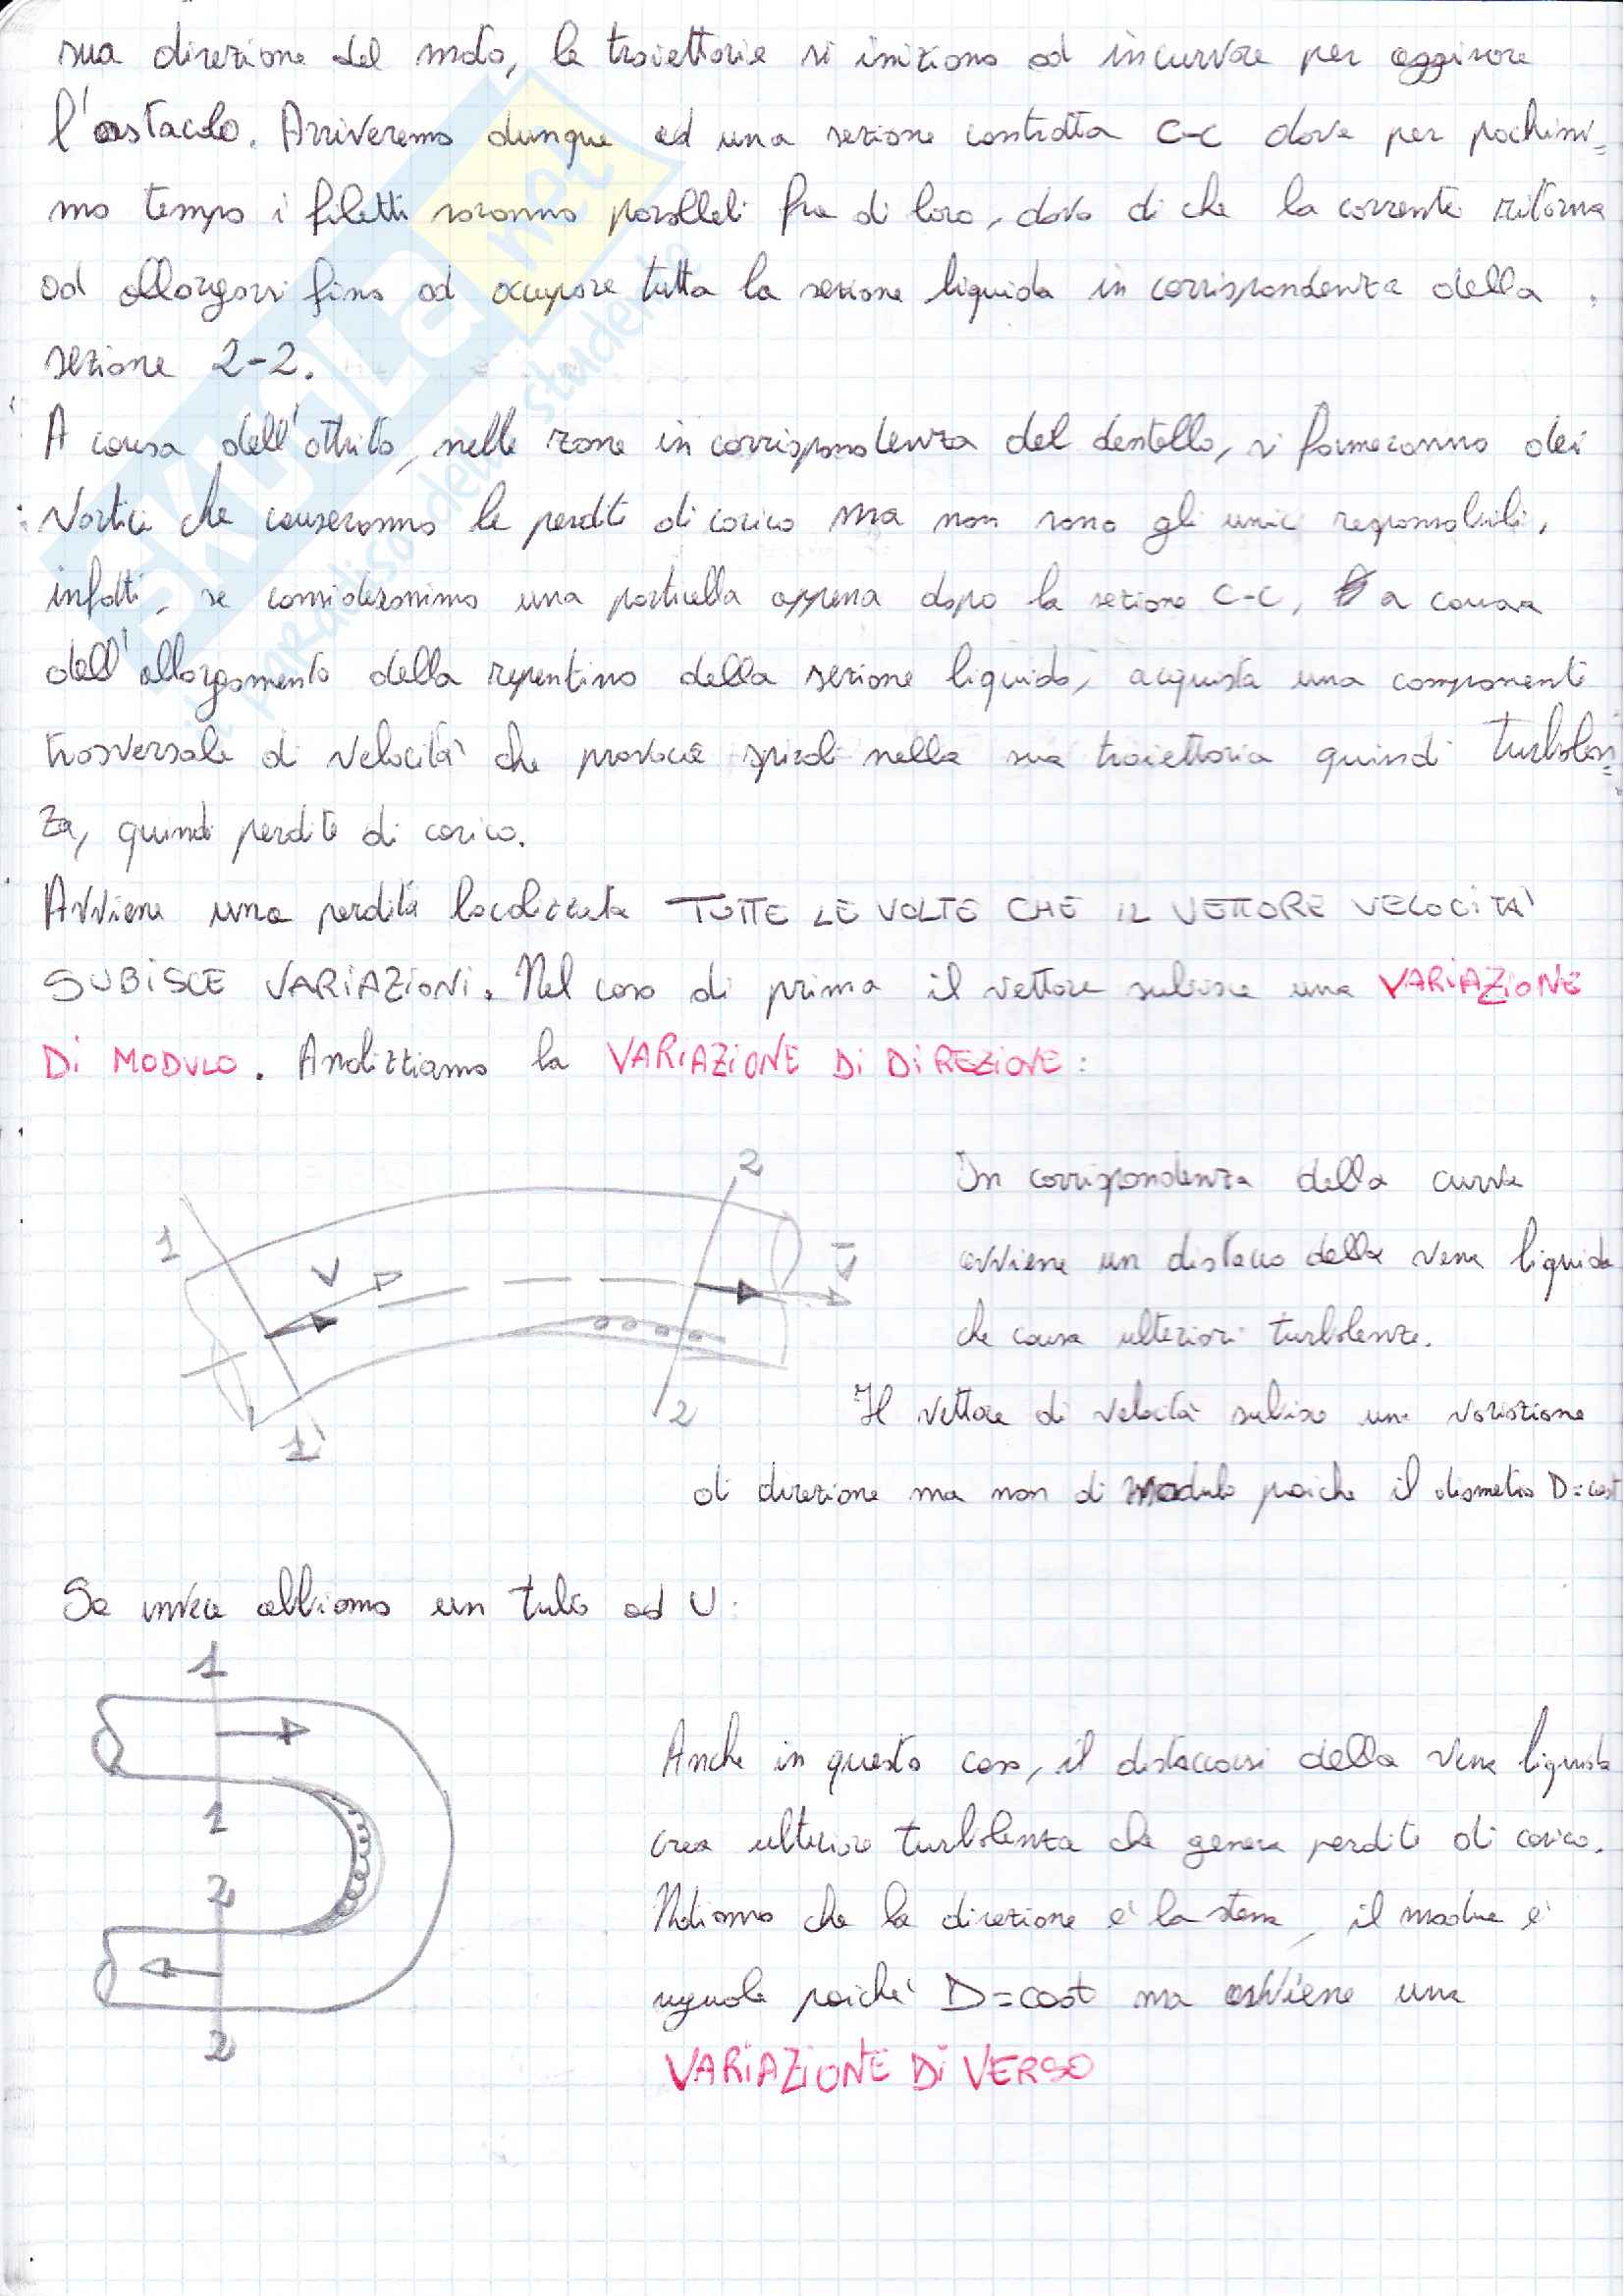 sua direzione del moto, le traiettorie si iniziano ad incurvare per aggirare
l'ostacolo. Arriveremo dunque ad una sezione contratta C-C dove per pochissi=
mo tempo i filetti saranno paralleli fra di loro, dopo di che la corrente ritorna
ad allargarsi fino ad occupare tutta la sezione liquida in corrispondenza della
sezione 2-2.
A causa dell'attrito, nelle zone in corrispondenza del dentello, si formeranno dei
vortici che causeranno le perdite di carico ma non sono gli unici responsabili,
infatti, se consideriamo una particella appena dopo la sezione C-C, a causa
dell'allargamento della repentino della sezione liquida, acquista una componente
trasversale di velocità che provoca spirali nella sua traiettoria quindi turbolen=
za, quindi perdite di carico.
Avviene una perdita localizzata TUTTE LE VOLTE CHE IL VETTORE VELOCITA'
SUBISCE VARIAZIONI. Nel caso di prima il vettore subisce una VARIAZIONE
DI MODULO. Analizziamo la VARIAZIONE DI DIREZIONE:
2
1
V
V
1
2
In corrispondenza della curva
avviene un distacco della vena liquida
che causa ulteriori turbolenze.
Il vettore di velocità subisce una variazione
di direzione ma non di modulo poiche il diametro D=cost
Se invece abbiamo un tubo ad U:
1
1
2
2
Anche in questo caso, il distaccarsi della vena liquida
crea ulteriore turbolenza che genera perdite di carico.
Notiamo che la direzione è la stessa, il modulo è
uguale poiché D=cost ma avviene una
VARIAZIONE DI VERSO
SKUOLA.net
il paradiso dello studente